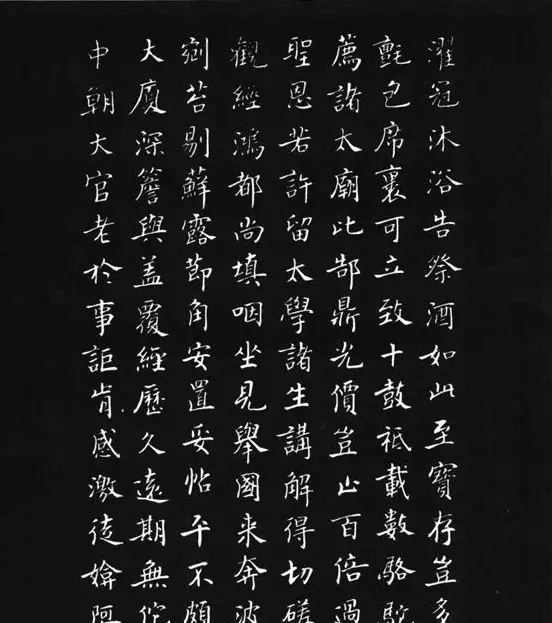 濯冠沐浴告祭酒如此至寶存豈多
氈包席裹可立致十鼓祗載數駱駝
薦諸太廟比郜鼎光價豈止百倍過
聖恩若許留太學諸生講解得切磋
觀經鴻都尚填咽坐見舉國来奔波
剜苔剔蘚露節角安置妥帖平不頗
大廈深簷與蓋覆經歷久遠期無佗
中朝大官老於事詎肯感激徒媕婀